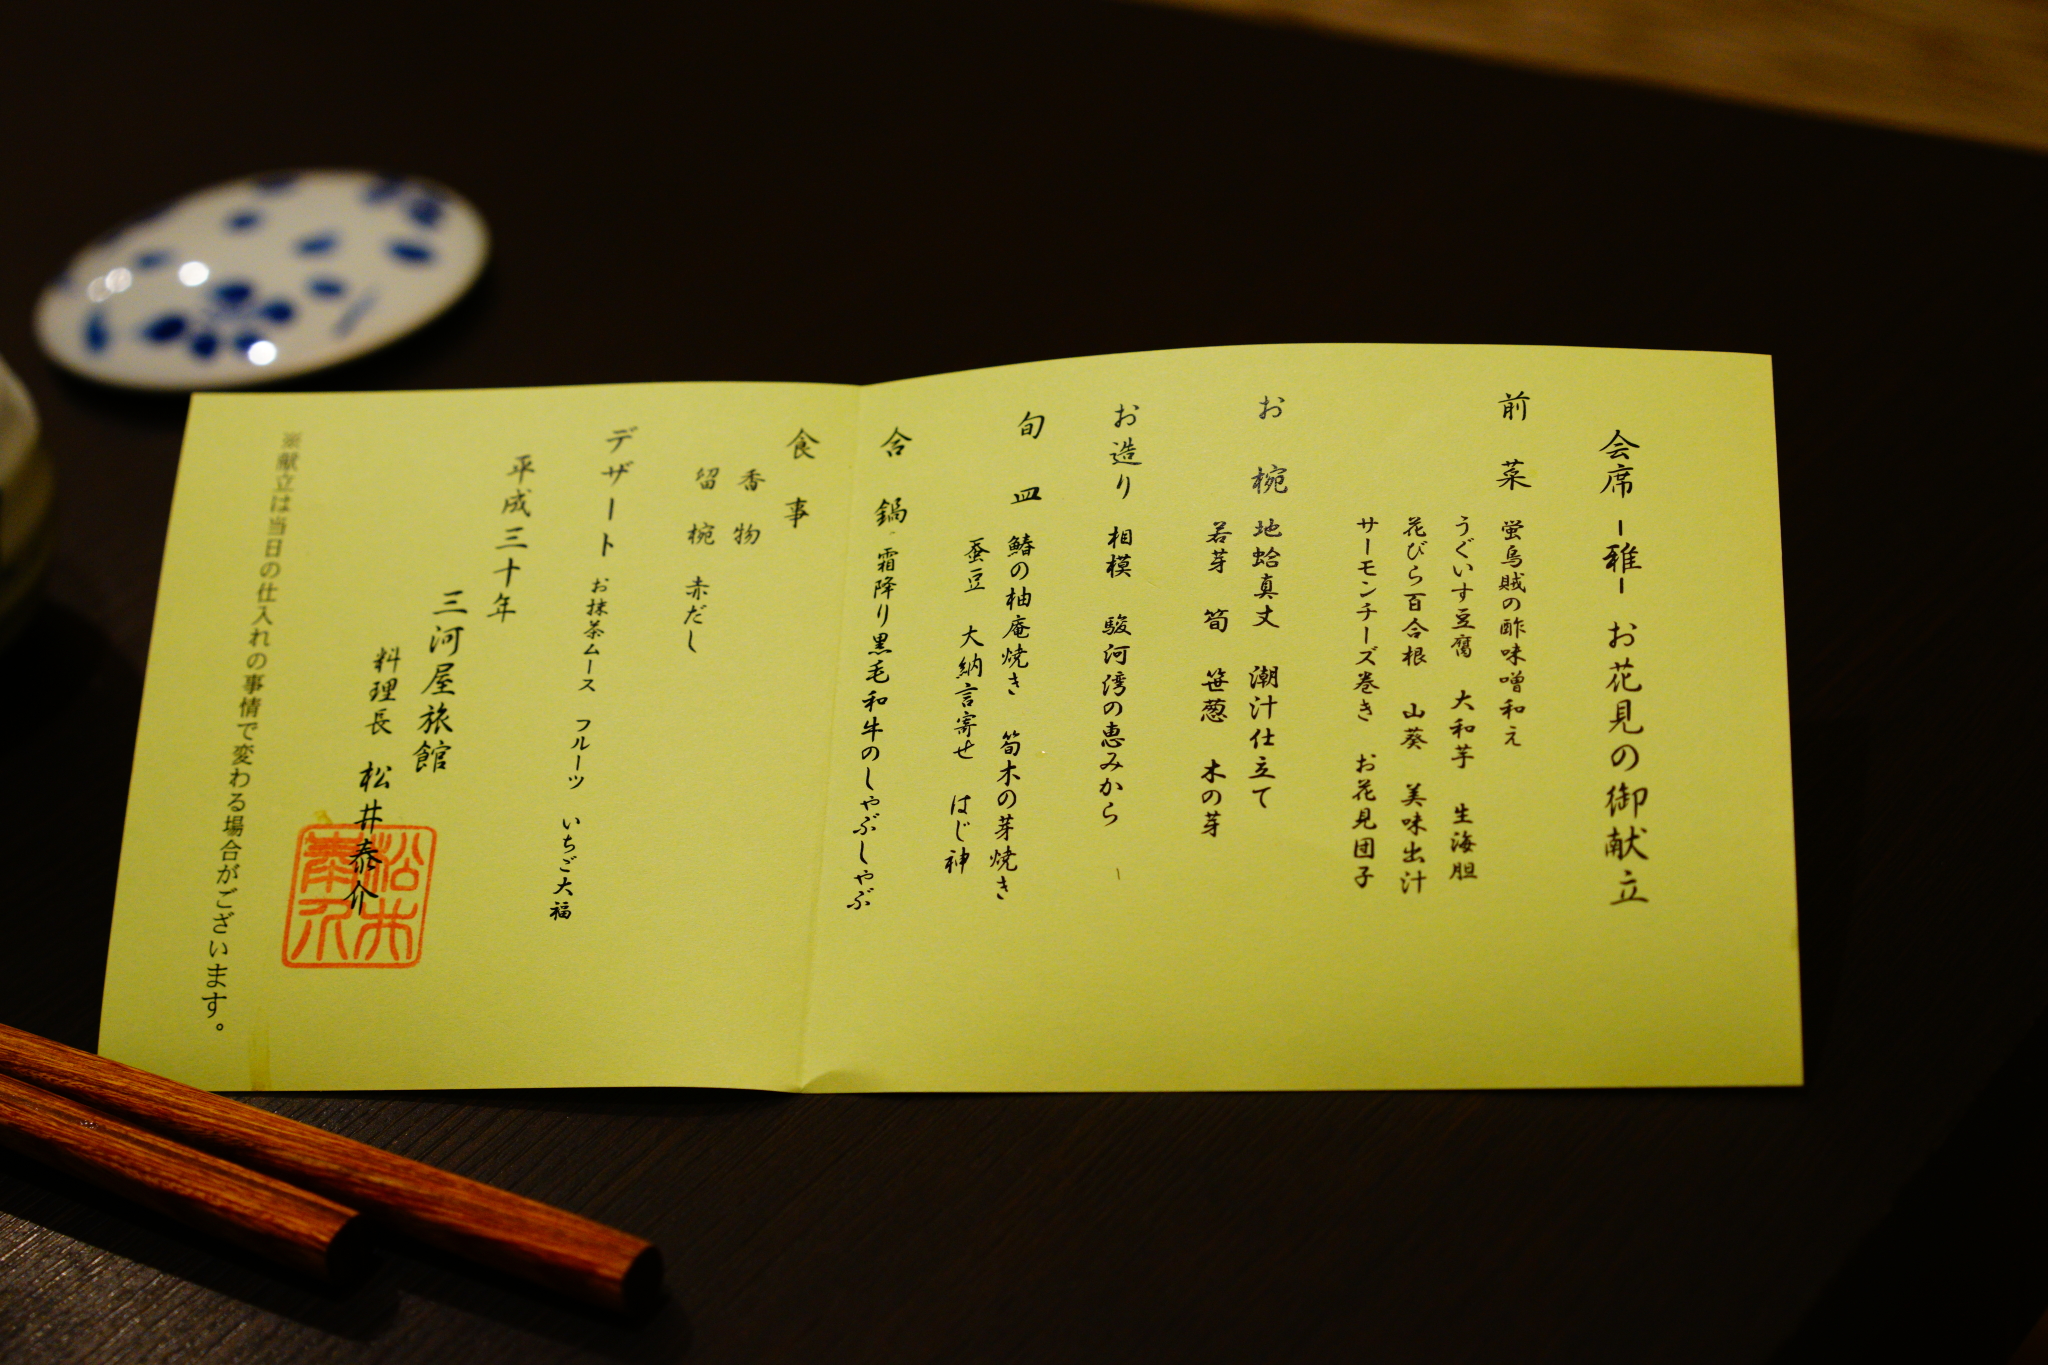 会席 ー雅ー お花見の御献立
前菜 蛍烏賊の酢味噌和え
うぐいす豆腐 大和芋 生海胆
花びら百合根 山葵 美味出汁
サーモンチーズ巻き お花見団子
お椀 地蛤真丈 潮汁仕立て
若芽 筍 笹葱 木の芽
お造り 相模 駿河湾の恵みから
旬皿 鰆の柚庵焼き 筍木の芽焼き
蚕豆 大納言寄せ はじ神
合鍋 霜降り黒毛和牛のしゃぶしゃぶ
食事
香物
留椀 赤だし
デザート お抹茶ムース フルーツ いちご大福
平成三十年
三河屋旅館
料理長 松井泰介
松井泰介
※献立は当日の仕入れの事情で変わる場合がございます。